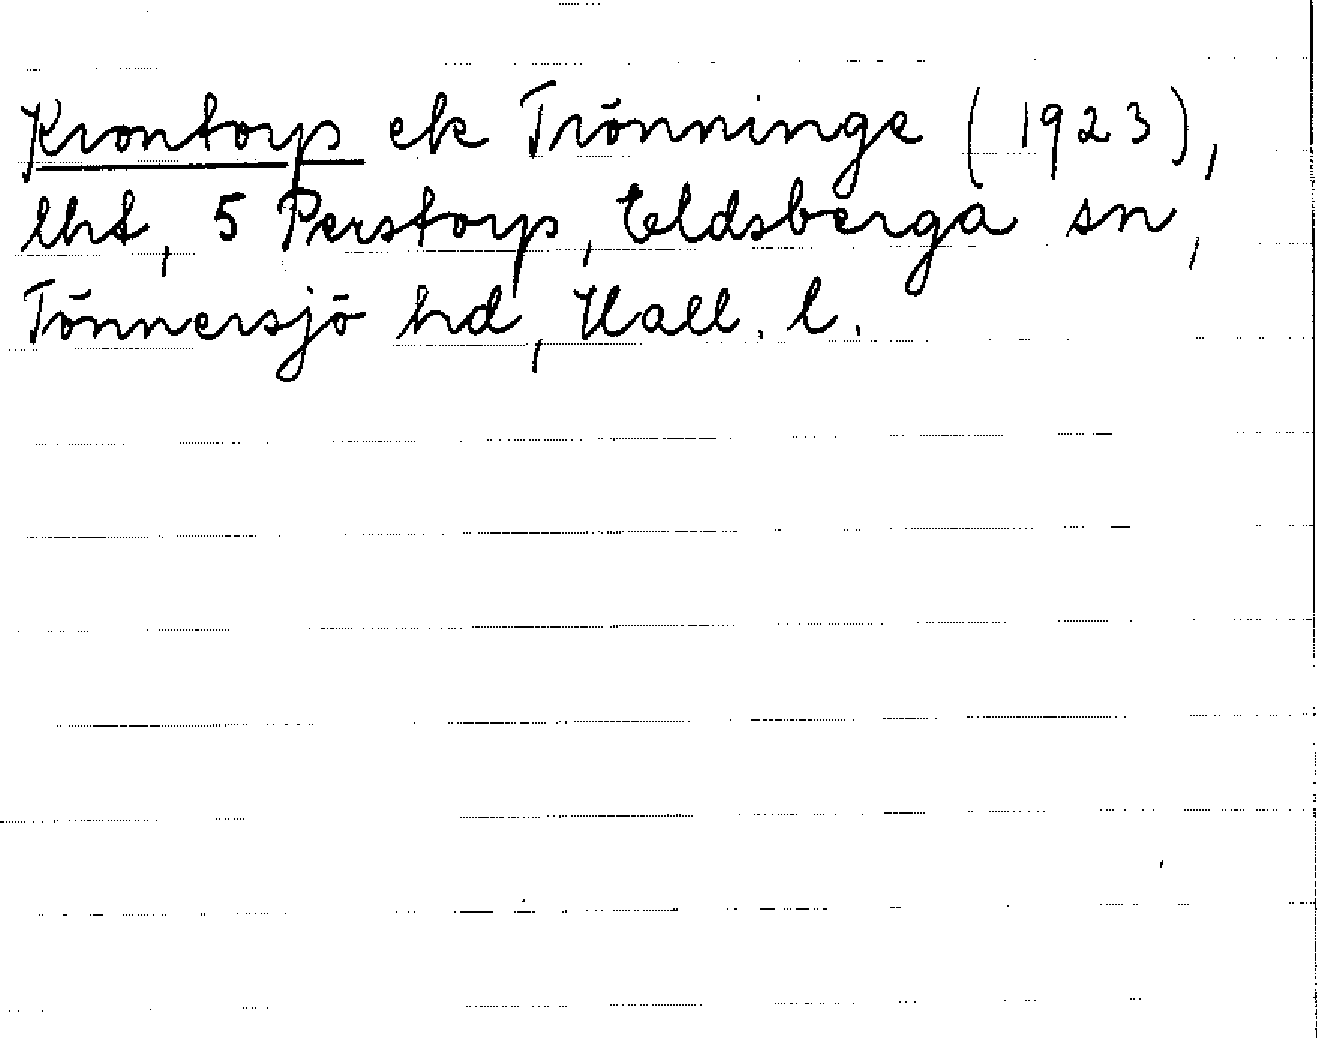 Krontorp ek Trönninge (1923),
lht, 5 Perstorp, Eldsberga sn,
Tönnersjö hd, Hall. l.